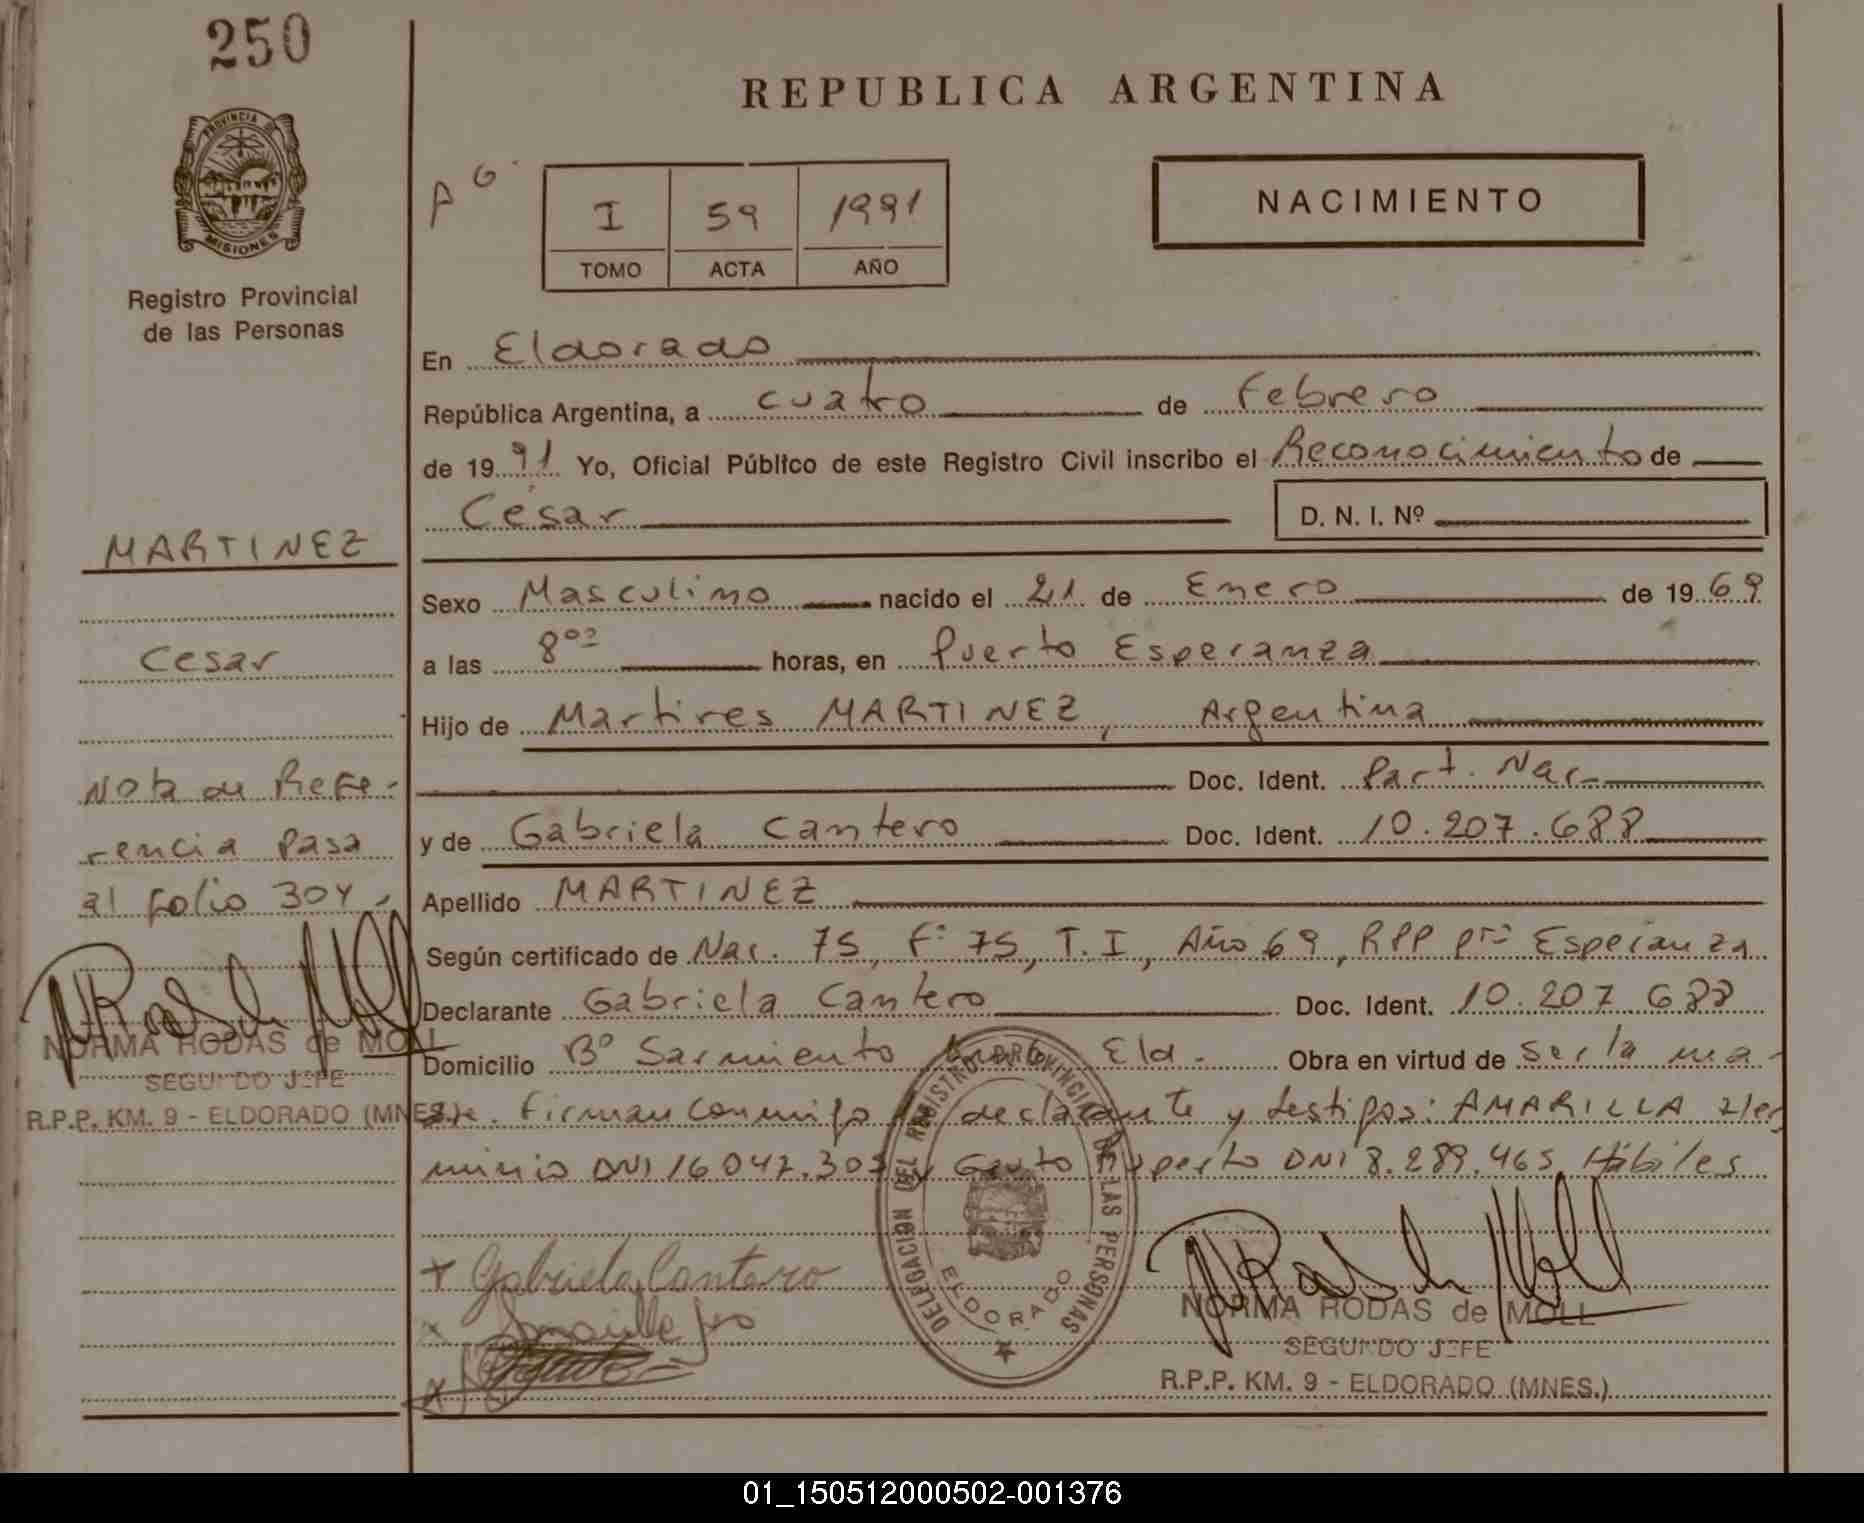 250
REPUBLICA ARGENTINA
PROVINCIA DE
MISIONES
Registro Provincial
de las Personas
I 59 1991
TOMO ACTA AÑO
NACIMIENTO
En Eldorado
República Argentina, a cuatro de Febrero
de 1991 Yo, Oficial Público de este Registro Civil inscribo el Reconocimiento de
César
D. N. I. Nº
MARTINEZ
Sexo Masculino nacido el 21 de Enero de 1969
Cesar
a las 8 horas, en Puerto Esperanza
Hijo de Martires MARTINEZ, Argentina
Nota de Refe-
Doc. Ident. Part. Nac.
rencia Pasa
y de Gabriela Cantero Doc. Ident. 10.207.688
al folio 304.
Apellido MARTINEZ
Según certificado de Nac. 75, Fº 75, T. I, Año 69, RPP Pto Esperanza
Declarante Gabriela Cantero Doc. Ident. 10.207.688
NORMA RODAS de MOLL
SEGUNDO JEFE
R.P.P. KM. 9 - ELDORADO (MNES.)
Domicilio Bº Sarmiento Eld. Obra en virtud de ser la ma-
dre. Firman conmigo declarante y testigos: AMARILLA
DNI 16.047.303 Ruperto DNI 8.289.465 Hábiles
DELEGACION DEL REGISTRO PROVINCIAL DE LAS PERSONAS
ELDORADO
Gabriela Cantero
NORMA RODAS de MOLL
SEGUNDO JEFE
R.P.P. KM. 9 - ELDORADO (MNES.)
01_150512000502-001376